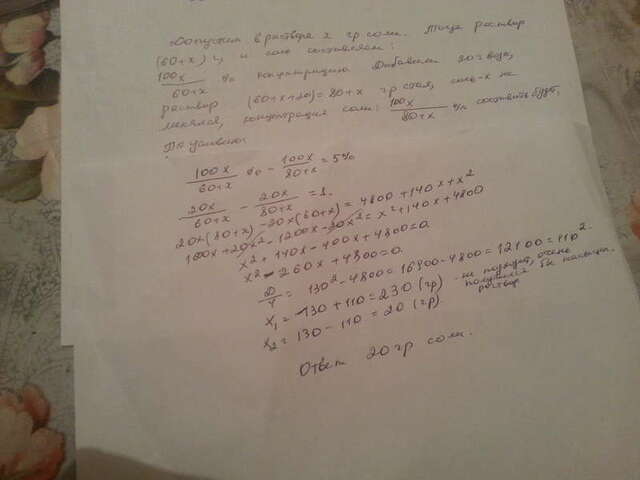 Допустим в растворе x гр соли. Тогда раствор
(60+x) г, и соль составляет:
100x/60+x % концентрацию. Добавили 20 г воды,
раствор (60+x+20)=80+x гр стал, соль-x не
менялся, концентрация соли: 100x/80+x % составить будет,
По условию:
100x/60+x % - 100x/80+x = 5%
20x/60+x - 20x/80+x = 1.
20x(80+x) -20x(60+x) = 4800+140x+x²
1600x+20x²-1200x-20x²=x²+140x+4800
x²+140x-400x+4800=0.
x²-260x+4800=0.
D/4 = 130²-4800=16900-4800=12100=110².
x₁=130+110=230(гр) - не подходит, очень
получился бы насыщ. раствор
x₂=130-110=20(гр).
Ответ 20 гр соли.